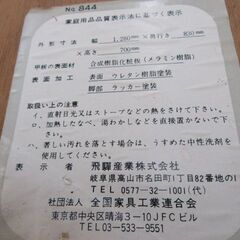 № 844
家庭用品品質表示法に基づく表示
外形寸法 幅1,280mm×奥行き830mm
×高さ 700mm
甲板の表面材 合成樹脂化粧板(メラミン樹脂)
表面加工 表面 ウレタン樹脂塗装
脚部 ラッカー塗装
取扱い上の注意
イ、直射日光又はストーブなどの熱をさけて下さい。
ロ、加熱したなべ、湯わかしなどは直接置かないで下さい。
ハ、著しい汚れを落とす場合は、うすめた中性洗剤を使用して下さい。
表示者 飛騨産業株式会社
岐阜県高山市名田町1丁目82番地の1
TEL 0577-32-1001(代)
社団法人 全国家具工業連合会
東京都中央区晴海3-10JFCビル
TEL 03-533-9551